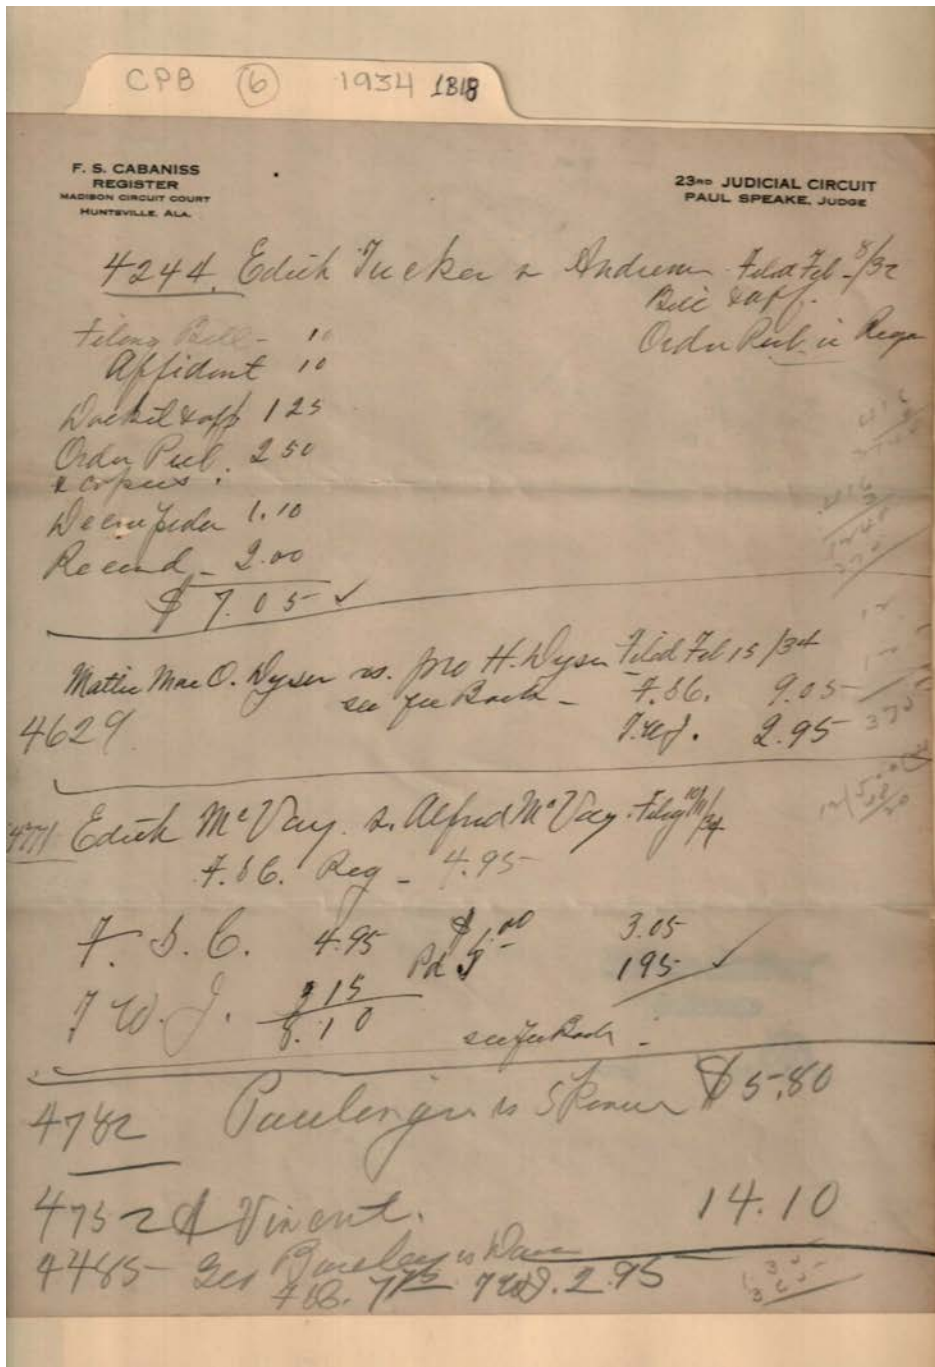 CPB 6 1934 1818
F. S. CABANISS
REGISTER
MADISON CIRCUIT COURT
HUNTSVILLE, ALA.
23RD JUDICIAL CIRCUIT
PAUL SPEAKE, JUDGE
4244. Edith Tucker vs Andrew Filed Feb 8/32
Bill & aff.
Order Pub. in Regr
Filing Bill - 10
Affidavit 10
Docket & app 125
Order Pub. 2 50
& copies.
1.10
Record - 2.00
$ 7.05 ✓
Mattie Mae O. Dyser vs. Jno H. Dyser Filed Feb 15/34
see fee Book - F.S.C. 9.05
4629 T.W.J. 2.95
4771 Edith McVay vs. Alfred McVay. Filing 10/11/34
F.S.C. Reg - 4.95
F. S. C. 4.95 $1.00 3.05
Pd 195 ✓
T W. J. 3 15
8.10 see fee Book -
4782 vs Skinner $5.80
4752 Vincent. 14.10
4485 Geo vs
F.S.C. T.W.J. 2.95